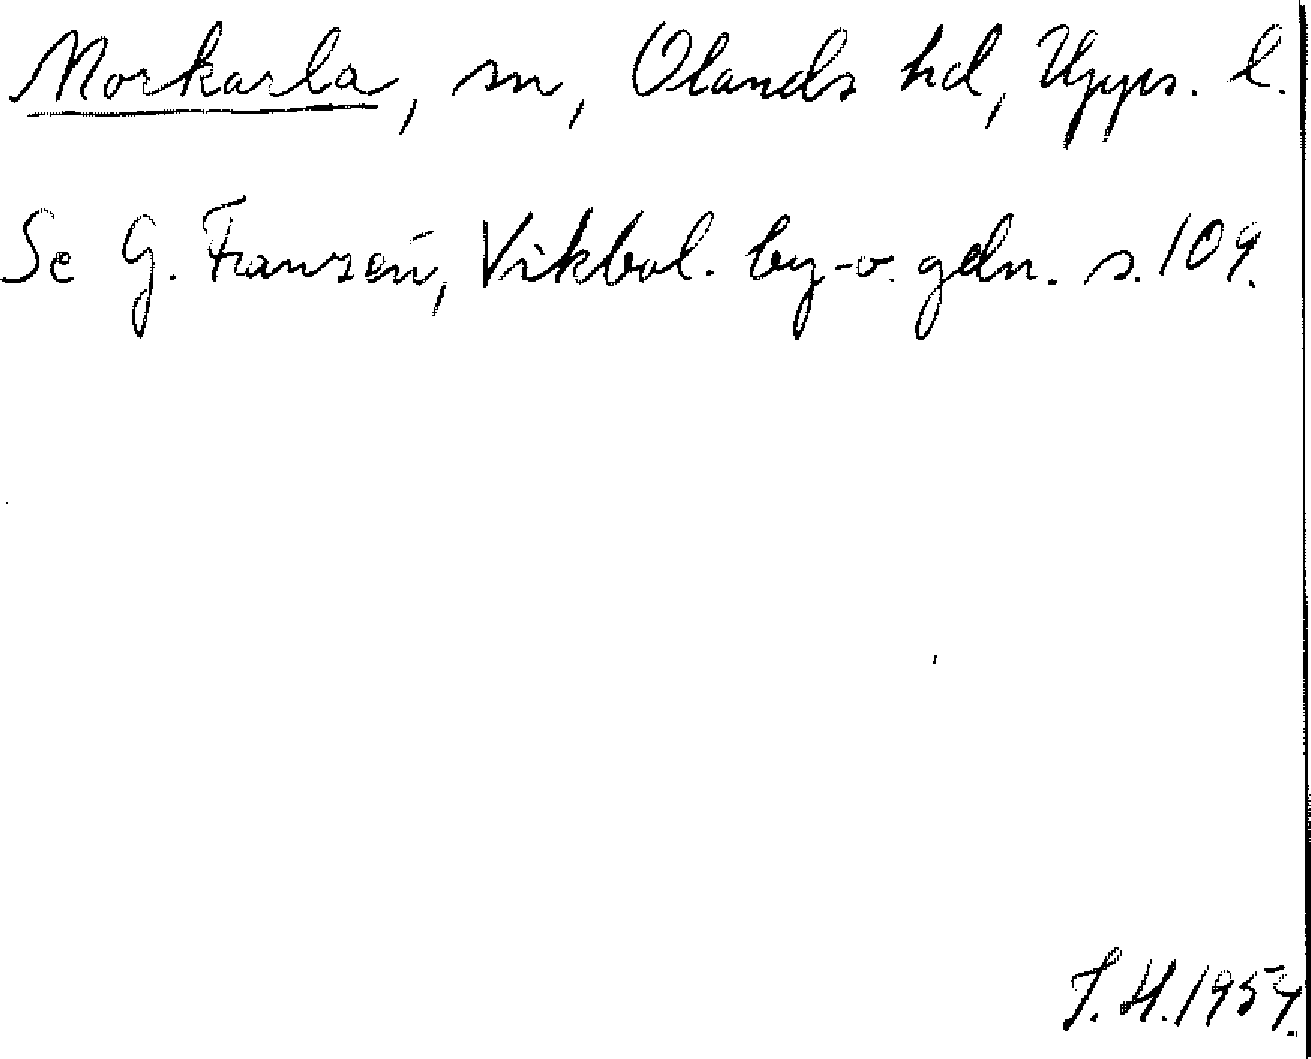 Morkarla, sn, Olands hd, Upps. l.
Se G. Franzén, Vikbol. by- o. gdn. s. 109.
1954.